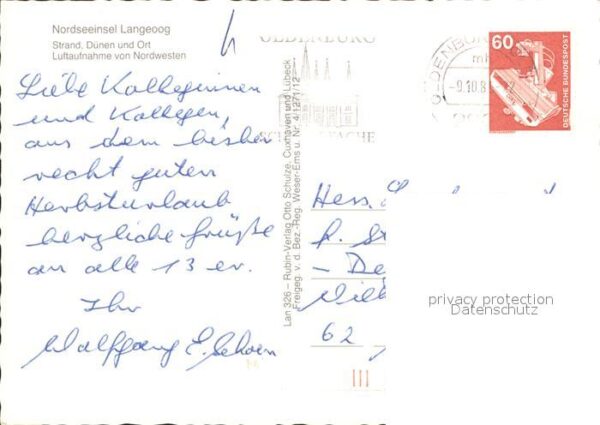 Nordseeinsel Langeoog
Strand, Dünen und Ort
Luftaufnahme von Nordwesten
Liebe Kolleginnen
und Kollegen,
aus dem bisher
recht guten
Herbsturlaub
herzliche Grüße
an alle 13 er.
Ihr
Wolfgang E.
Lan 326 – Rubin-Verlag Otto Schulze, Cuxhaven und Lübeck
Freigeg. v. d. Bez.-Reg. Weser-Ems u. Nr. 4/1271/12
OLDENBURG
OLDENBURG
-9.10.8
60
DEUTSCHE BUNDESPOST
62
privacy protection
Datenschutz